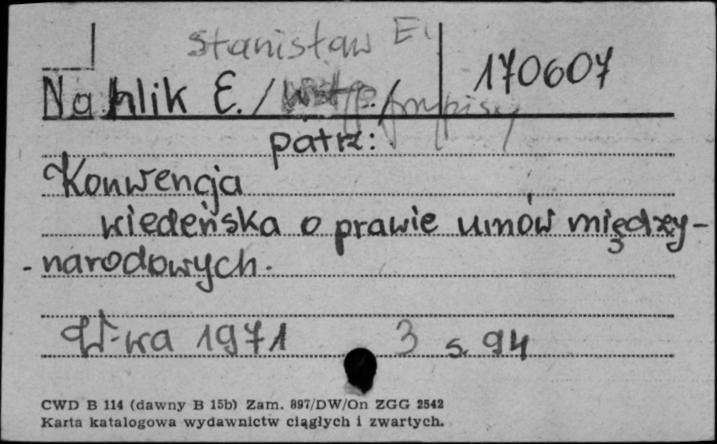 Stanisław E.
170607
Nahlik E. / wstęp. / przypisy
patrz:
Konwencja
wiedeńska o prawie umów między-
-narodowych.
W-wa 1971 3 s. 94
CWD B 114 (dawny B 15b) Zam. 897/DW/On ZGG 2542
Karta katalogowa wydawnictw ciągłych i zwartych.